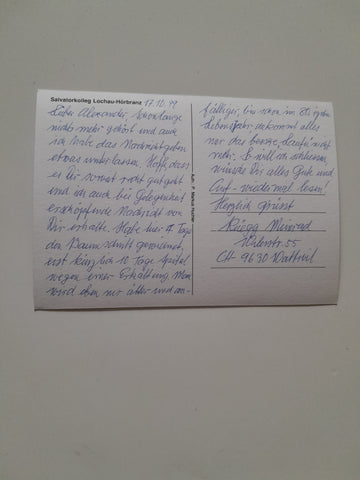 Salvatorkolleg Lochau-Hörbranz 17.10.99
Lieber Alexander, schon lange
nichts mehr gehört und auch
ich habe das Nachricht geben
etwas unterlassen. Hoffe, dass
es Dir sonst recht gut geht
und ich auch bei Gelegenheit
erschöpfende Nachricht von
Dir erhalte. Habe hier 11 Tage
den Baum schnitt
erst kürzlich 10 Tage Spital
wegen einer Erkältung. Man
wird eben nur älter und an-
fälliger, bin schon im 85igsten
Lebensjahr da kommt alles
nur das bessere, läuft nicht
mehr. So will ich schliessen,
wünsche Dir alles Gute und
Auf-wiedermal lesen!
Herzlich grüsst
Rüegg Meinrad
55
CH-9630 Wattwil
Aufn. P. Markus